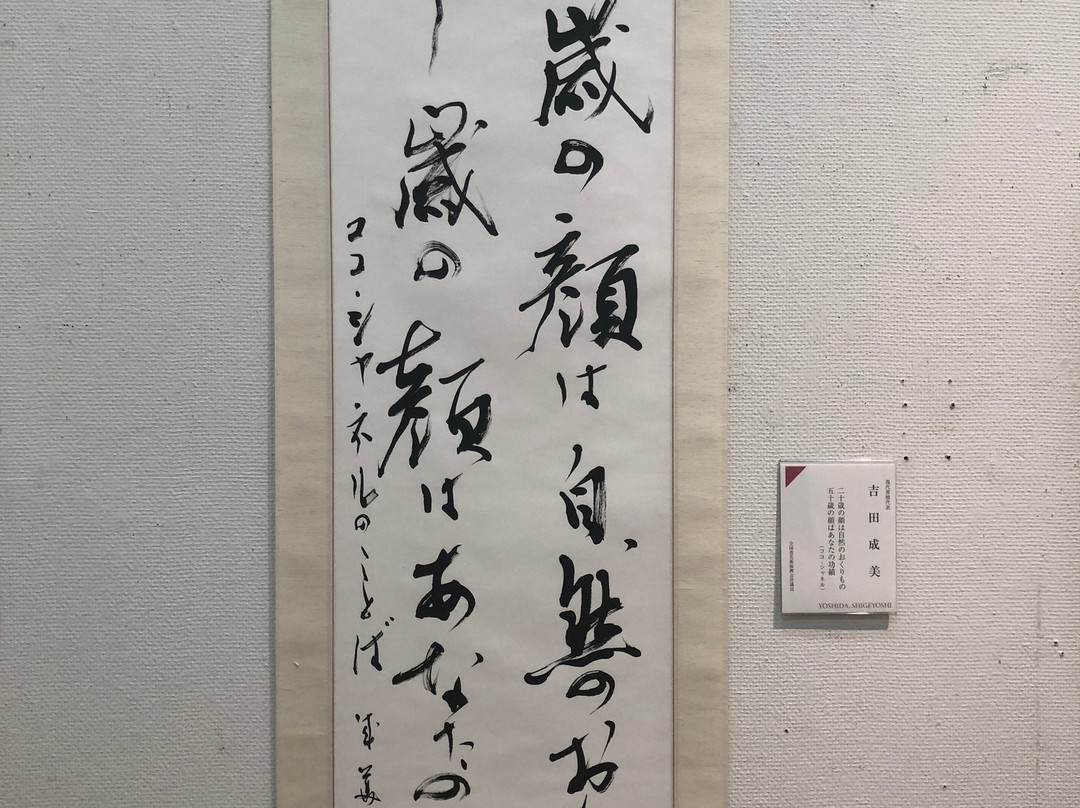 歳の顔は自然のお
歳の顔はあなたの
ココ・シャネルのことば 成美
現代書檀代表
吉田成美
二十歳の顔は自然のおくりもの
五十歳の顔はあなたの功績
(ココ・シャネル)
YOSHIDA, SHIGEYOSHI